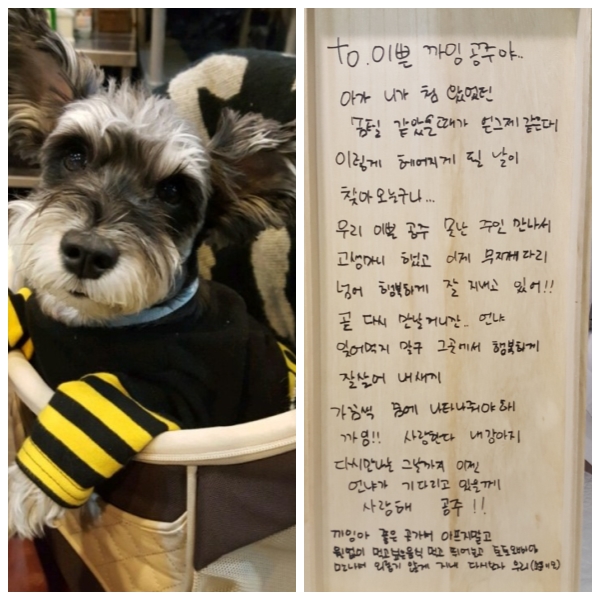 to. 이쁠 까밍 공주야..
아가 니가 첨 았었던
같았을때가 엊그제 같은데
이렇게 헤어지게 될 날이
찾아 오는구나...
우리 이쁠 공주 못난 주인 만나서
고생마니 했고 이제 무지개다리
넘어 행복하게 잘 지내고 있어!!
곧 다시 만날거니깐.. 언냐
잊어먹지 말구 그곳에서 행복하게
잘살어 내새끼
가끔씩 꿈에 나타나줘야해
까밍!! 사랑한다 내강아지
다시만나는 그날까지 이젠
언냐가 기다리고 있을께
사랑해 공주 !!
까밍아 좋은 곳가서 아프지말고
먹고싶는음식 먹고 뛰어놀고
외롭지 않게 지내 다시보자 우리